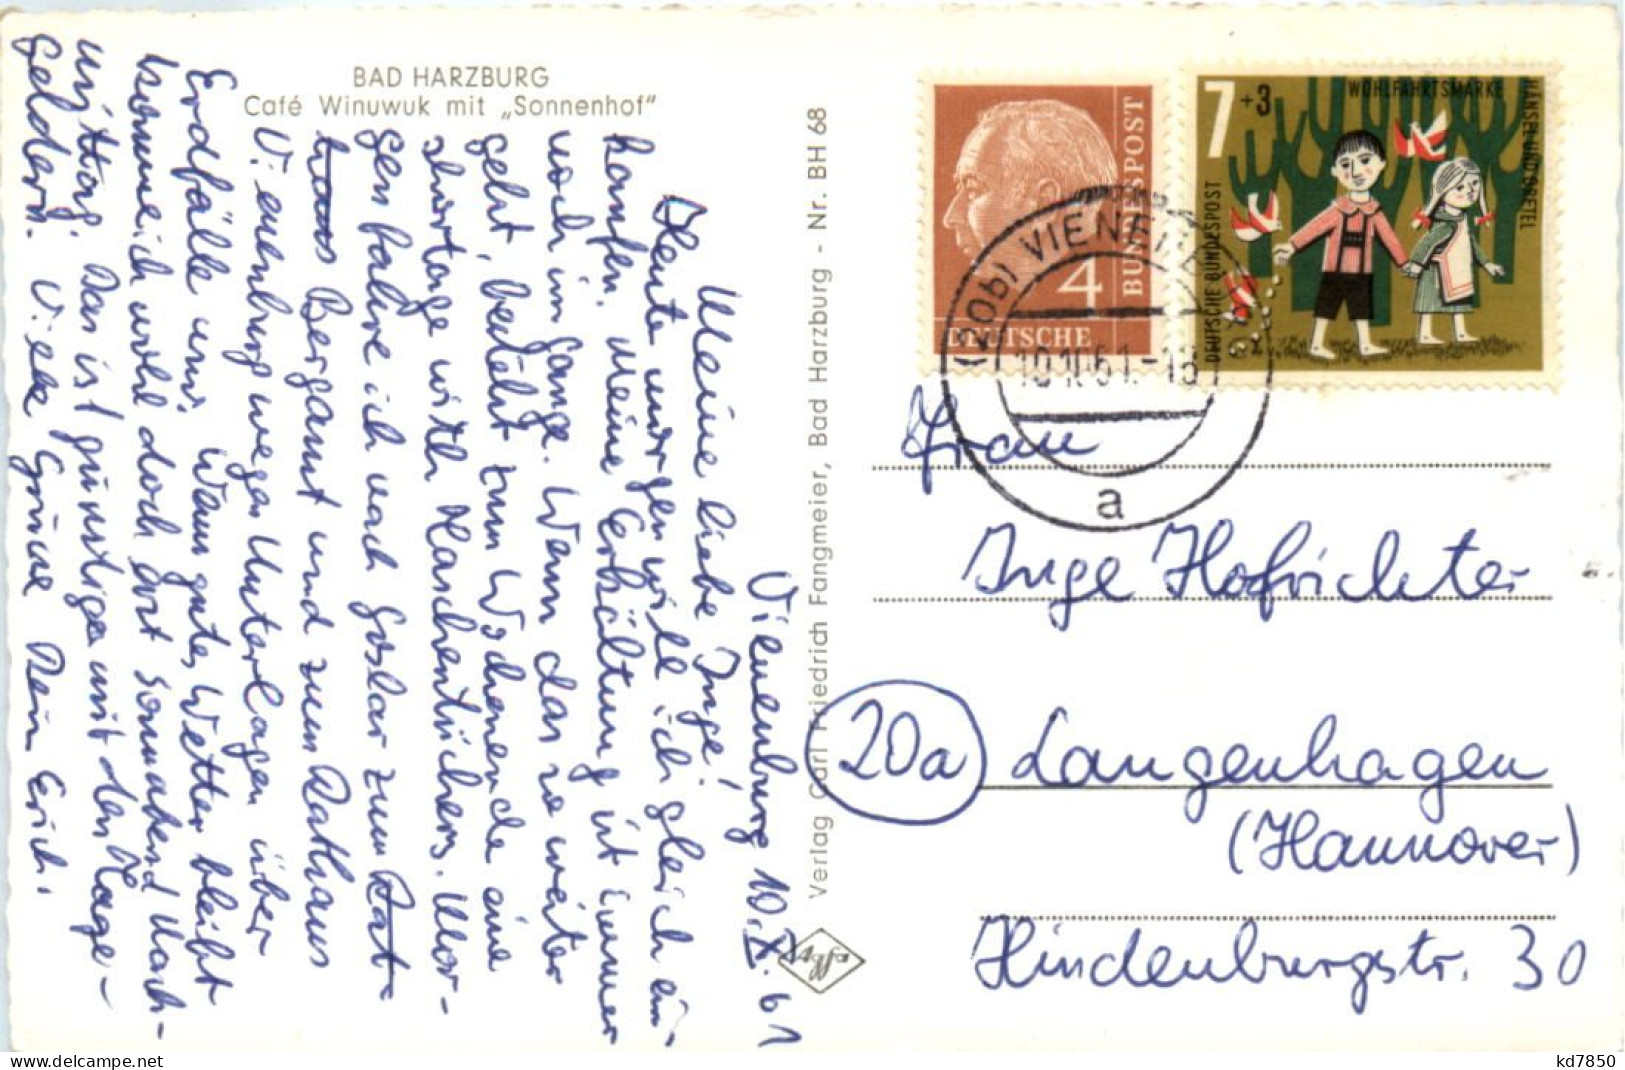 BAD HARZBURG
Café Winuwuk mit „Sonnenhof"
Vienenburg 10.X.61
Meine liebe Inge!
Heute morgen will ich gleich ein-
kaufen. Meine Erkältung ist immer
noch im Gange. Wenn das so weiter
geht, besteht zum Wochenende eine
shortage with Taschentüchern. Mor-
gen fahre ich nach Goslar zum Rat-
haus Bergamt und zum Rathaus
V.enenburg wegen Unterlagen über
Erdfälle usw. Wenn gutes Wetter bleibt
komme ich wohl doch erst Sonnabend Nach-
mittag. Das ist günstiger mit den Tage-
geldern. Viele Grüsse Dein Erich.
Verlag Carl Friedrich Fangmeier, Bad Harzburg - Nr. BH 68
DEUTSCHE
BUNDESPOST
4
7+3
WOHLFAHRTSMARKE
HÄNSEL UND GRETEL
DEUTSCHE BUNDESPOST
(20b) VIENENBURG
10.10.61.-18
a
Frau
Inge Hofrichter
20a Langenhagen
(Hannover)
Hindenburgstr. 30
www.delcampe.net
kd7850